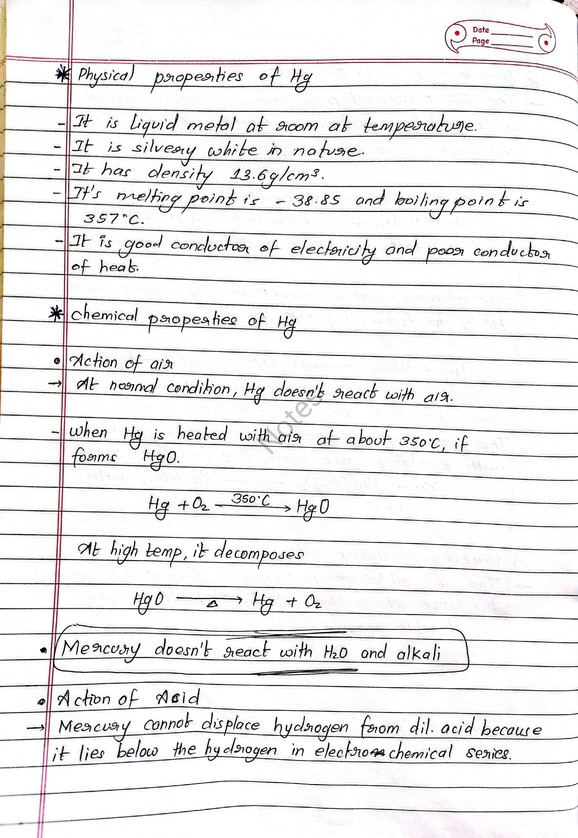 Date
Page
* Physical properties of Hg
- It is liquid metal at room at temperature.
- It is silvery white in nature.
- It has density 13.6g/cm³.
- It's melting point is - 38.85 and boiling point is
357°C.
- It is good conductor of electricity and poor conductor
of heat.
* chemical properties of Hg
• Action of air
→ At normal condition, Hg doesn't react with air.
- when Hg is heated with air at about 350°C, it
forms HgO.
Hg + O₂ 350°C → HgO
At high temp, it decomposes
HgO Δ → Hg + O₂
• Mercury doesn't react with H₂O and alkali
• Action of Acid
→ Mercury cannot displace hydrogen from dil. acid because
it lies below the hydrogen in electrochemical series.
Notes